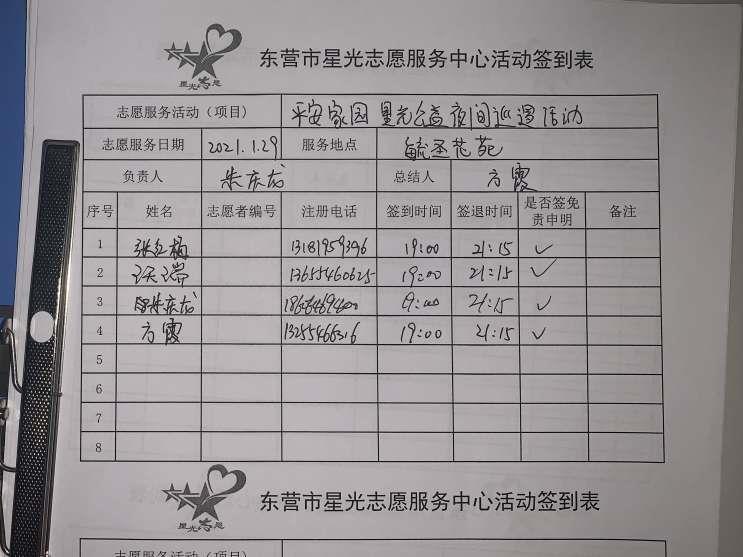 星光志愿
东营市星光志愿服务中心活动签到表
志愿服务活动（项目） 平安家园 星光公益夜间巡逻活动
志愿服务日期 2021.1.29 服务地点 毓丞花苑
负责人 朱东龙 总结人 方霞
序号 姓名 志愿者编号 注册电话 签到时间 签退时间 是否签免责申明 备注
1 张红梅 19:00 21:15 ✓
2 13655460625 19:00 21:15 ✓
3 朱东龙 21:15 ✓
4 方霞 13255466316 19:00 21:15 ✓
5
6
7
8
星光志愿
东营市星光志愿服务中心活动签到表
志愿服务活动（项目）